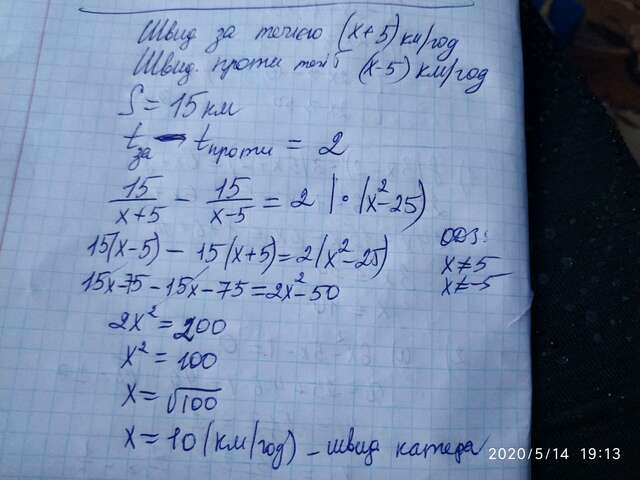 Швид за течією (x+5) км/год
Швид. проти течії (x-5) км/год
S = 15 км
t за - t проти = 2
15/(x+5) - 15/(x-5) = 2 | · (x²-25)
15(x-5) - 15(x+5) = 2(x²-25)
ОДЗ:
x≠5
x≠-5
15x-75-15x-75=2x²-50
2x² = 200
x² = 100
x = √100
x = 10 (км/год) - швид катера
2020/5/14 19:13